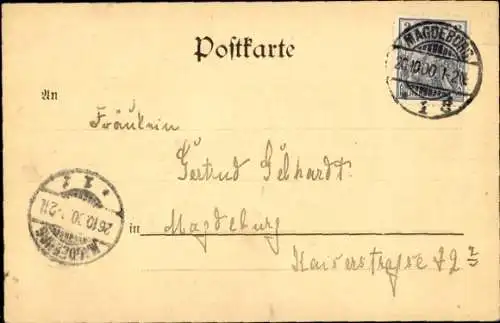 Postkarte
MAGDEBURG
26.10.00. 1-2N.
1 B
An
Fräulein
Gertrud Gebhardt.
in Magdeburg
Kaiserstrasse
MAGDEBURG
26.10.00. 1-2N.
1